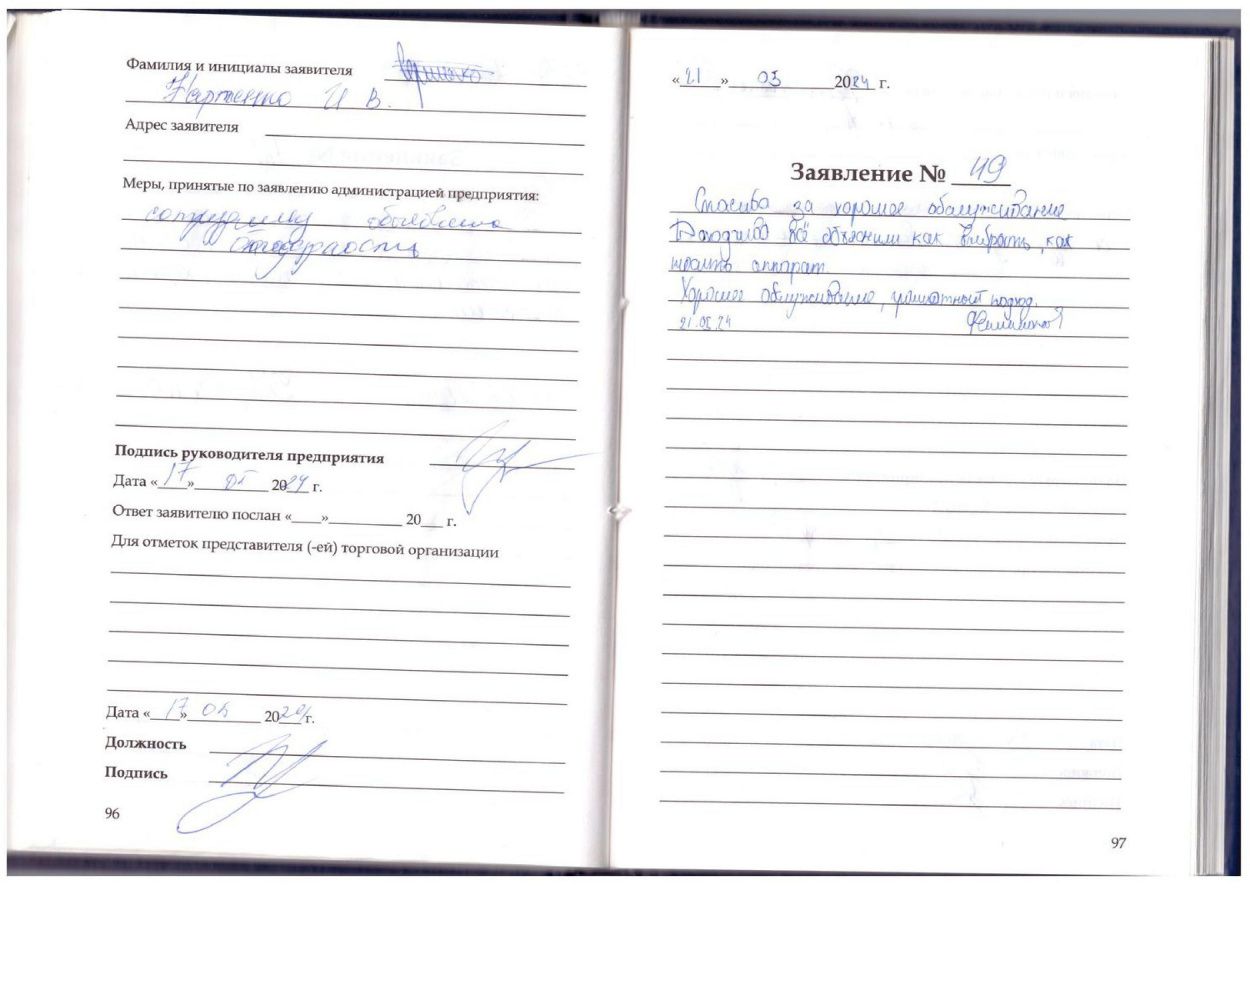 Фамилия и инициалы заявителя
И В.
Адрес заявителя
Меры, принятые по заявлению администрацией предприятия:
сотруднику объявлена
благодарность
Подпись руководителя предприятия
Дата «17» 05 2024 г.
Ответ заявителю послан «____»__________ 20___ г.
Для отметок представителя (-ей) торговой организации
Дата «17» 05 2024 г.
Должность
Подпись
96
«21» 05 2024 г.
Заявление № 49
Спасибо за хорошее обслуживание
всё объяснили как выбрать, как
аппарат.
Хорошее обслуживание, подход.
21.05.24
97